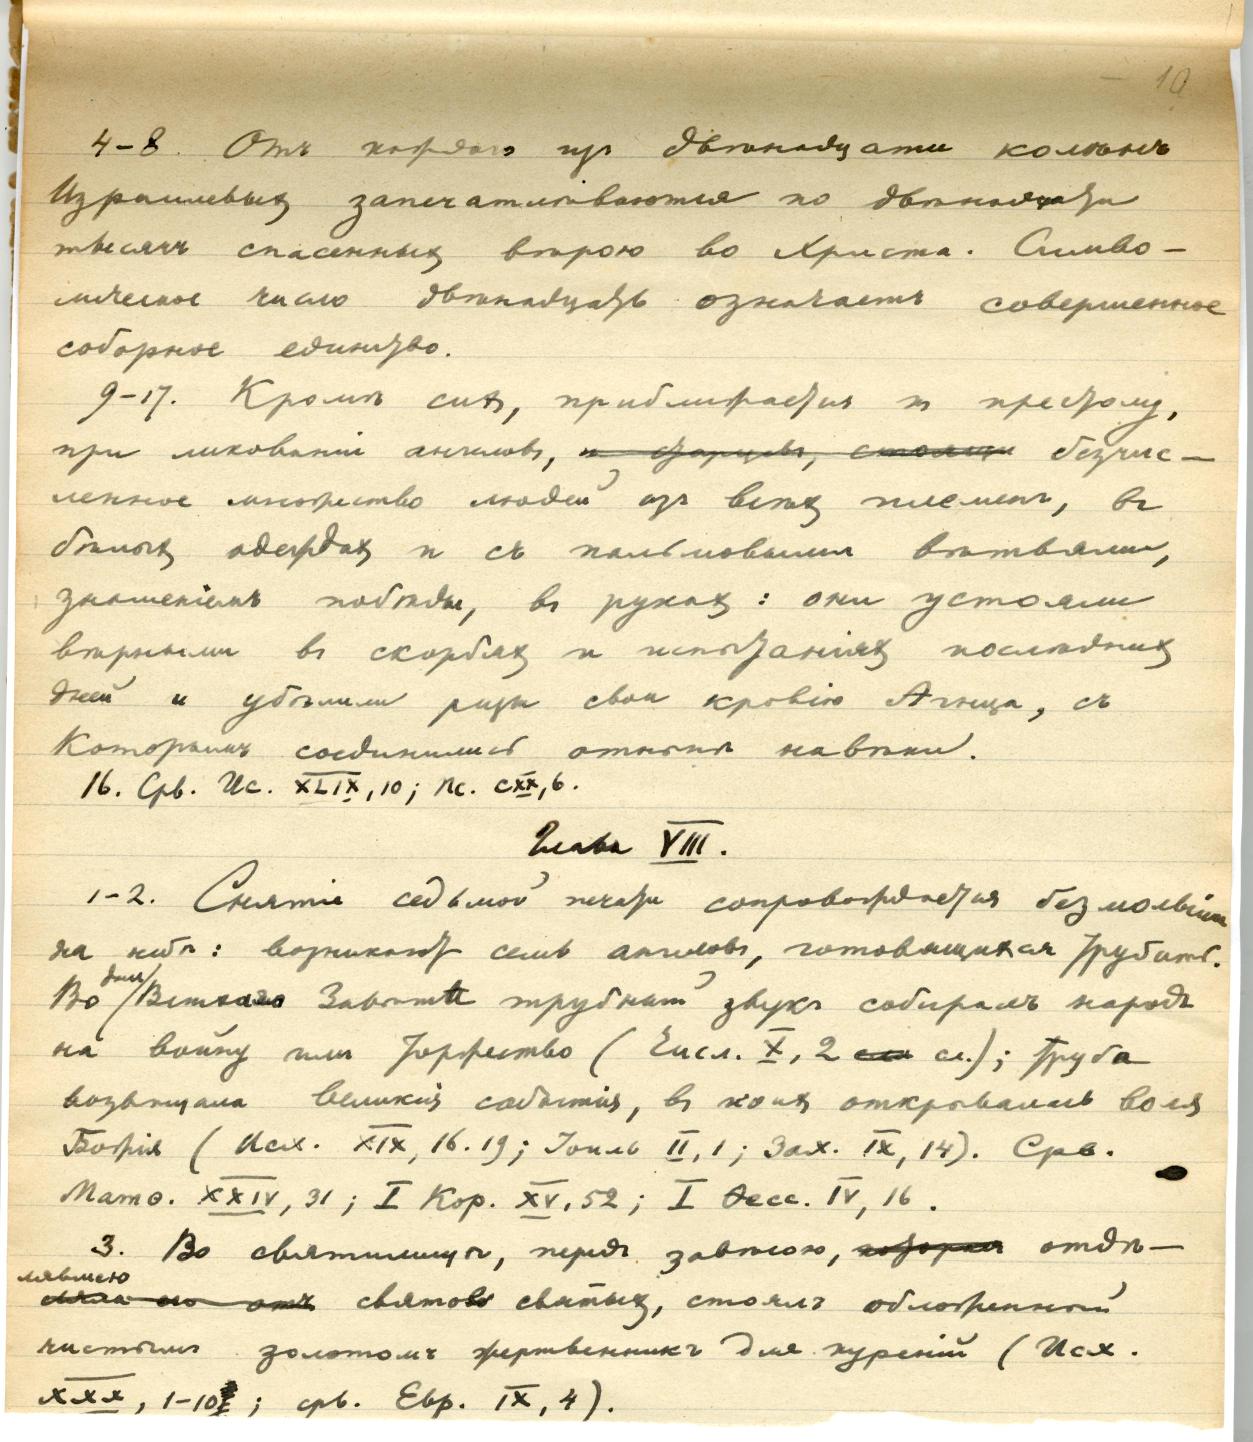 — 19
4-8. Отъ каждаго изъ двѣнадцати колѣнъ
Израилевыхъ запечатлѣваются по двѣнадцати
тысячъ спасенныхъ вѣрою во Христа. Симво-
лическое число двѣнадцать означаетъ совершенное
соборное единство.
9-17. Кромѣ сихъ, приближается къ престолу,
при ликованіи ангеловъ, и старцевъ, стоящи безчис-
ленное множество людей изъ всѣхъ племенъ, въ
бѣлыхъ одеждахъ и съ пальмовыми вѣтвями,
знаменіемъ побѣды, въ рукахъ: они устояли
вѣрными въ скорбяхъ и испытаніяхъ послѣднихъ
дней и убѣлили ризы свои кровію Агнца, съ
Которымъ соединились отнынѣ навѣки.
16. Срв. Ис. XLIX, 10; Пс. CXX, 6.
Глава VIII.
1-2. Снятіе седьмой печати сопровождается безмолвіемъ
на небѣ: возникаютъ семь ангеловъ, готовящихся трубить.
Во дни Ветхаго Завѣта трубный звукъ собиралъ народъ
на войну или торжество (Числ. X, 2 сл.); труба
возвѣщала великія событія, въ коихъ открывалась воля
Божія (Исх. XIX, 16. 19; Іоиль II, 1; Зах. IX, 14). Срв.
Матѳ. XXIV, 31; I Кор. XV, 52; I Ѳесс. IV, 16.
3. Во святилищѣ, передъ завѣсою, которая отдѣ-
лявшею
святое святыхъ, стоялъ обложенный
чистымъ золотомъ жертвенникъ для куреній (Исх.
XXX, 1-10; срв. Евр. IX, 4).